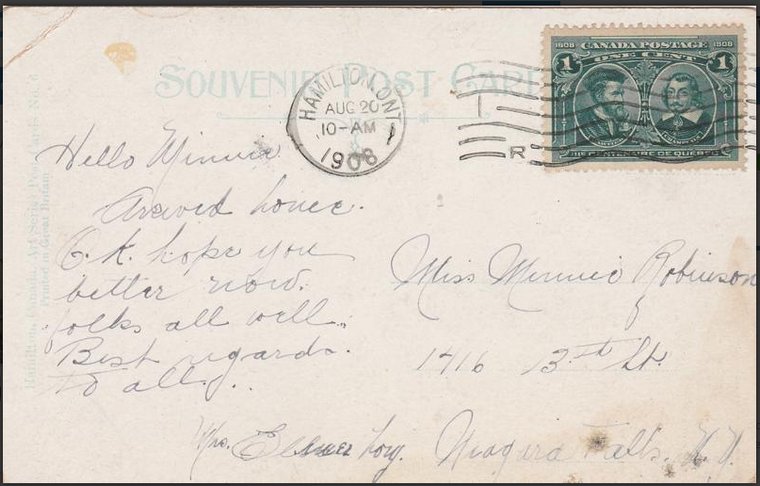 SOUVENIR POST CARD
HAMILTON, ONT.
AUG 20
10-AM
1908
I
R
1608 CANADA POSTAGE 1908
ONE CENT
1 1
IIIE CENTENAIRE DE QUEBEC
Hello Minnie
Arrived home.
O.K. hope you
better now.
folks all well.
Best regards.
to all.
Mrs. Elmer
Miss Minnie Robinson
1416 13th St.
Niagara Falls. N.Y.
Hamilton, Canada, Art Series Post Cards No. 6
Printed in Great Britain